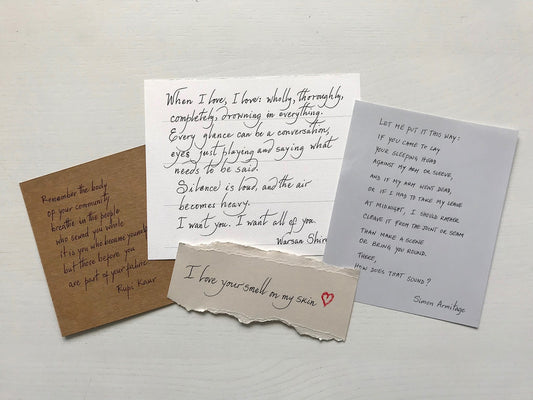 Remember the body
of your community
breathe in the people
who sewed you whole
it is you who became yourself
but those before you
are part of your fabric
Rupi Kaur
When I love, I love: wholly, thoroughly,
completely, drowning in everything.
Every glance can be a conversation,
eyes just playing and saying what
needs to be said.
Silence is loud, and the air
becomes heavy.
I want you. I want all of you.
Warsan Shire
I love your smell on my skin
LET ME PUT IT THIS WAY:
IF YOU CAME TO LAY
YOUR SLEEPING HEAD
AGAINST MY ARM OR SLEEVE,
AND IF MY ARM WENT DEAD,
OR IF I HAD TO TAKE MY LEAVE
AT MIDNIGHT, I SHOULD RATHER
CLEAVE IT FROM THE JOINT OR SEAM
THAN MAKE A SCENE
OR BRING YOU ROUND.
THERE,
HOW DOES THAT SOUND?
Simon Armitage